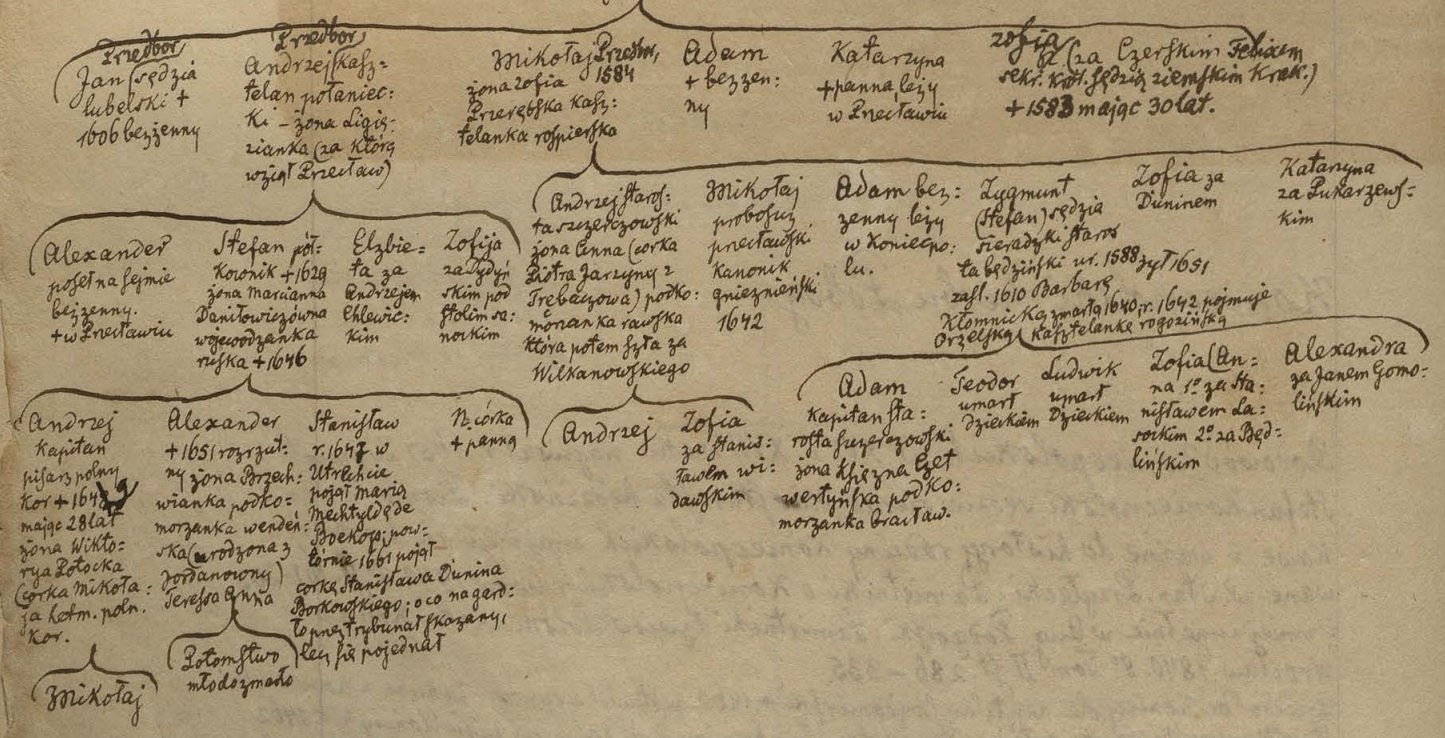 Przedbor
Jan sędzia
lubelski +
1606 bezżenny
Przedbor
Andrzej kasz-
telan połaniec:
ki – żona Ligię-
zianka (za którą
wziął Przecław)
Mikołaj Przedbor,
żona Zofia 1584
Przerębska kasz:
telanka rospierska
Adam
+ bezżen:
ny
Katarzyna
+ panna leży
w Przecławiu
Zofia
(za Czerskim Felixem
sekr. król. sędzią ziemskim Krak.)
+ 1583 mając 30 lat.
Alexander
poseł na sejmie
bezżenny.
+ w Przecławiu
Stefan pół-
kownik + 1629
żona Marcianna
Daniłowiczówna
wojewodzanka
ruska + 1646
Elzbie=
ta za
Andrzejem
Chlewic:
kim
Zofija
za Dydyń
skim pod
stolim sa:
nockim
Andrzej staros-
ta szczerczowski
żona Anna (corka
Piotra Jarzyny z
Trębaczowa) podko:
morzanka rawska
która potem szła za
Wilkanowskiego
Mikołaj
proboszcz
przecławski
Kanonik
gnieznieński
1642
Adam bez:
zenny leży
w Koniecpo:
lu.
Zygmunt
(Stefan) sędzia
sieradzki staros
ta będziński ur. 1588 żył 1651
zasl. 1610 Barbarę
Kłomnicką zmarłą 1640, r. 1642 pojmuje
Orzelską kasztelankę rogozińską
Zofia za
Duninem
Katarzyna
za Pukarzews-
kim
Andrzej
Kapitan
pisarz polny
Kor + 1649
mając 28 lat
żona Wikto-
rya Potocka
(corka Mikoła:
ja hetm. poln.
Kor.
Alexander
+ 1651 rozrzut:
ny żona Brzech:
wianka podko-
morzanka wendeń:
ska (urodzona z
Jordanowny)
Teressa Anna
Stanisław
r. 1647 w
Utrechcie
pojął Marią
Mechtyldę de
Boekop; pow-
tórnie 1661 pojął
corkę Stanisława Dunina
Borkowskiego; o co na gard-
ło przez trybunał skazany,
lecz się pojednał
N. córka
+ panną
Andrzej
Zofia
za Stanis:
ławem Wi-
dawskim
Adam
Kapitan sta:
rosta szczerczowski
żona Księzna Czet
wertyńska podko:
morzanka bracław.
Teodor
umarł
dzieckiem
Ludwik
umarł
Dzieckiem
Zofia (An-
na 1º za Sta:
nisławem La-
sockim 2º za Będ-
lińskim
Alexandra
za Janem Gomo-
lińskim
Mikołaj
Potomstwo
młodo zmarło